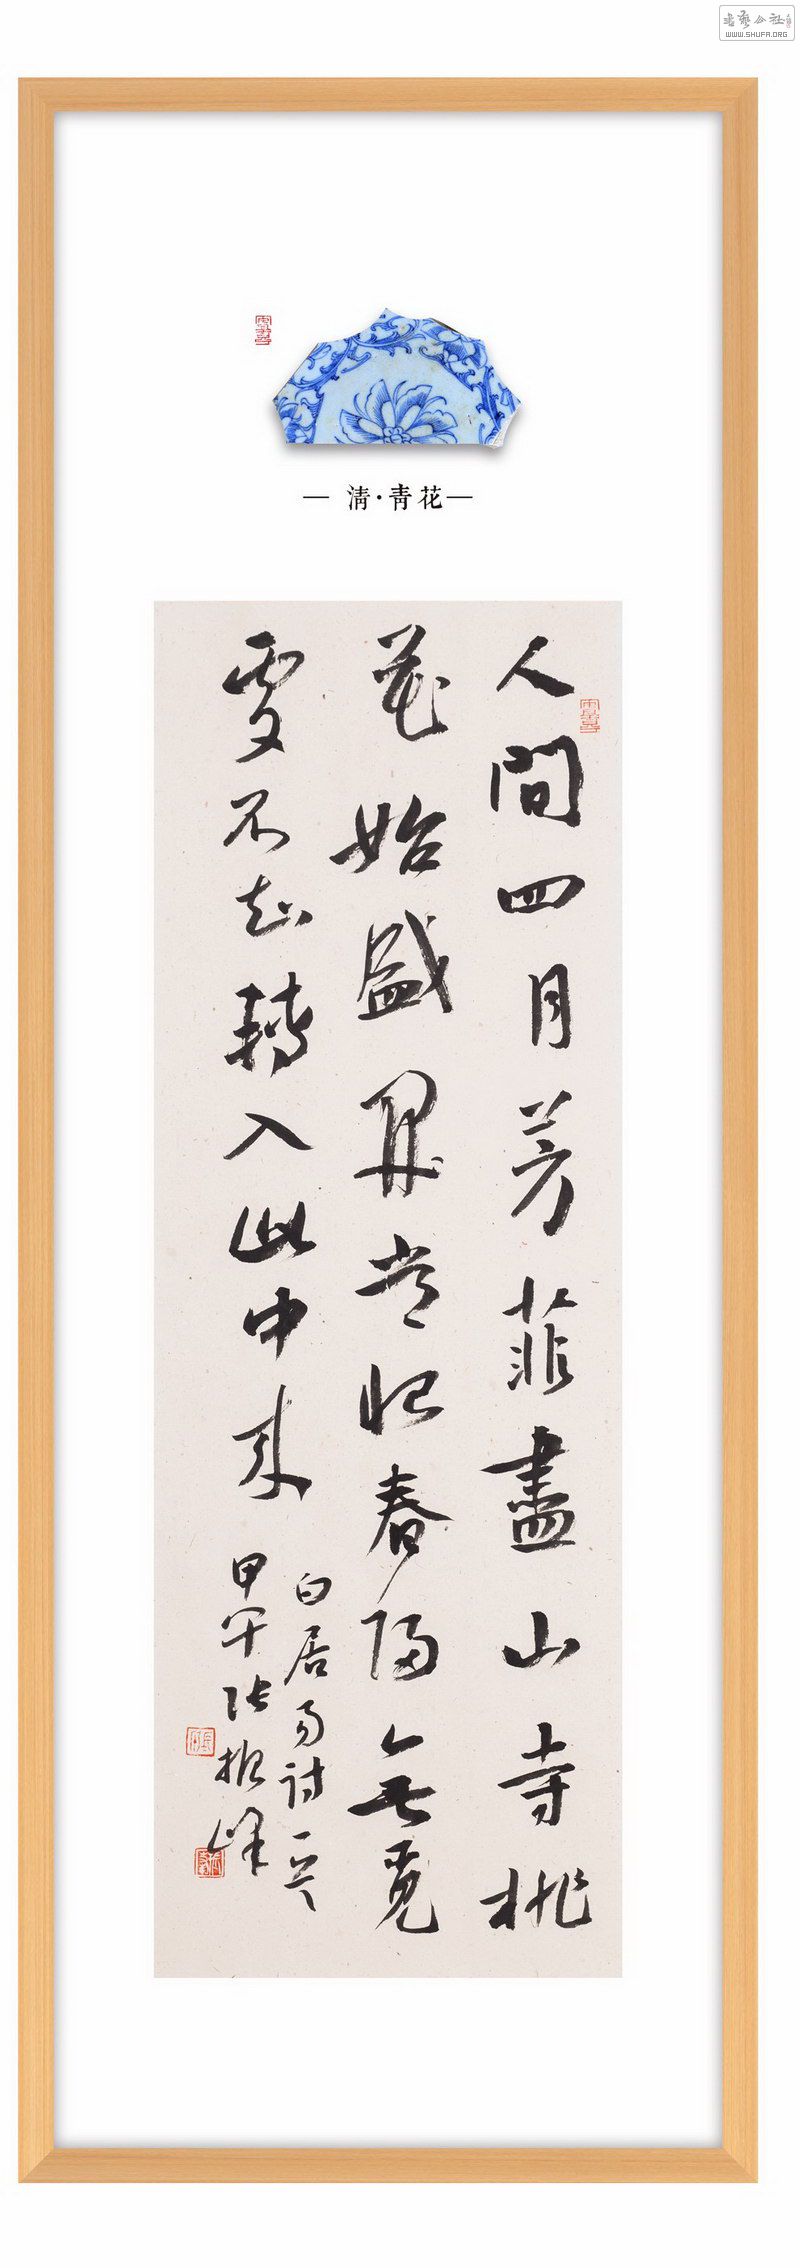 書藝公社
WWW.SHUFA.ORG
— 清·青花—
人間四月芳菲盡山寺桃
花始盛開長恨春歸無覓
處不知轉入此中來
白居易詩一首
甲午張振峰